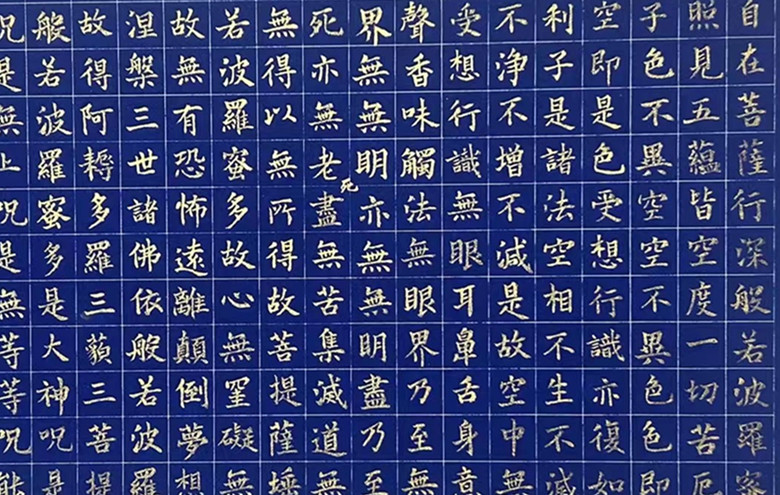 自在菩薩行深般若波羅蜜
照見五蘊皆空度一切苦厄
子色不異空空不異色色即
空即是色受想行識亦復如
利子是諸法空相不生不滅
不浄不增不減是故空中無
受想行識無眼耳鼻舌身意
聲香味觸法無眼界乃至無
界無無明亦無無明盡乃至
死亦無老死盡無苦集滅道無
無得以無所得故菩提薩埵
若波羅蜜多故心無罣礙無
故無有恐怖遠離顛倒夢想
涅槃三世諸佛依般若波羅
故得阿耨多羅三藐三菩提
般若波羅蜜多是大神呪是
呪是無上呪是無等等呪能